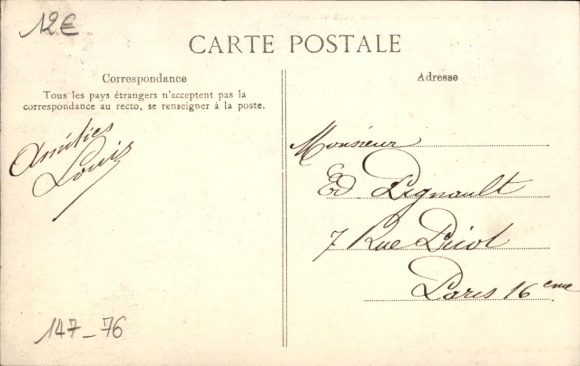 12€
CARTE POSTALE
Correspondance
Tous les pays étrangers n'acceptent pas la
correspondance au recto, se renseigner à la poste.
Amitiés
Louis
147-76
Adresse
Monsieur
Ed Pignault
7 Rue Picot
Paris 16eme